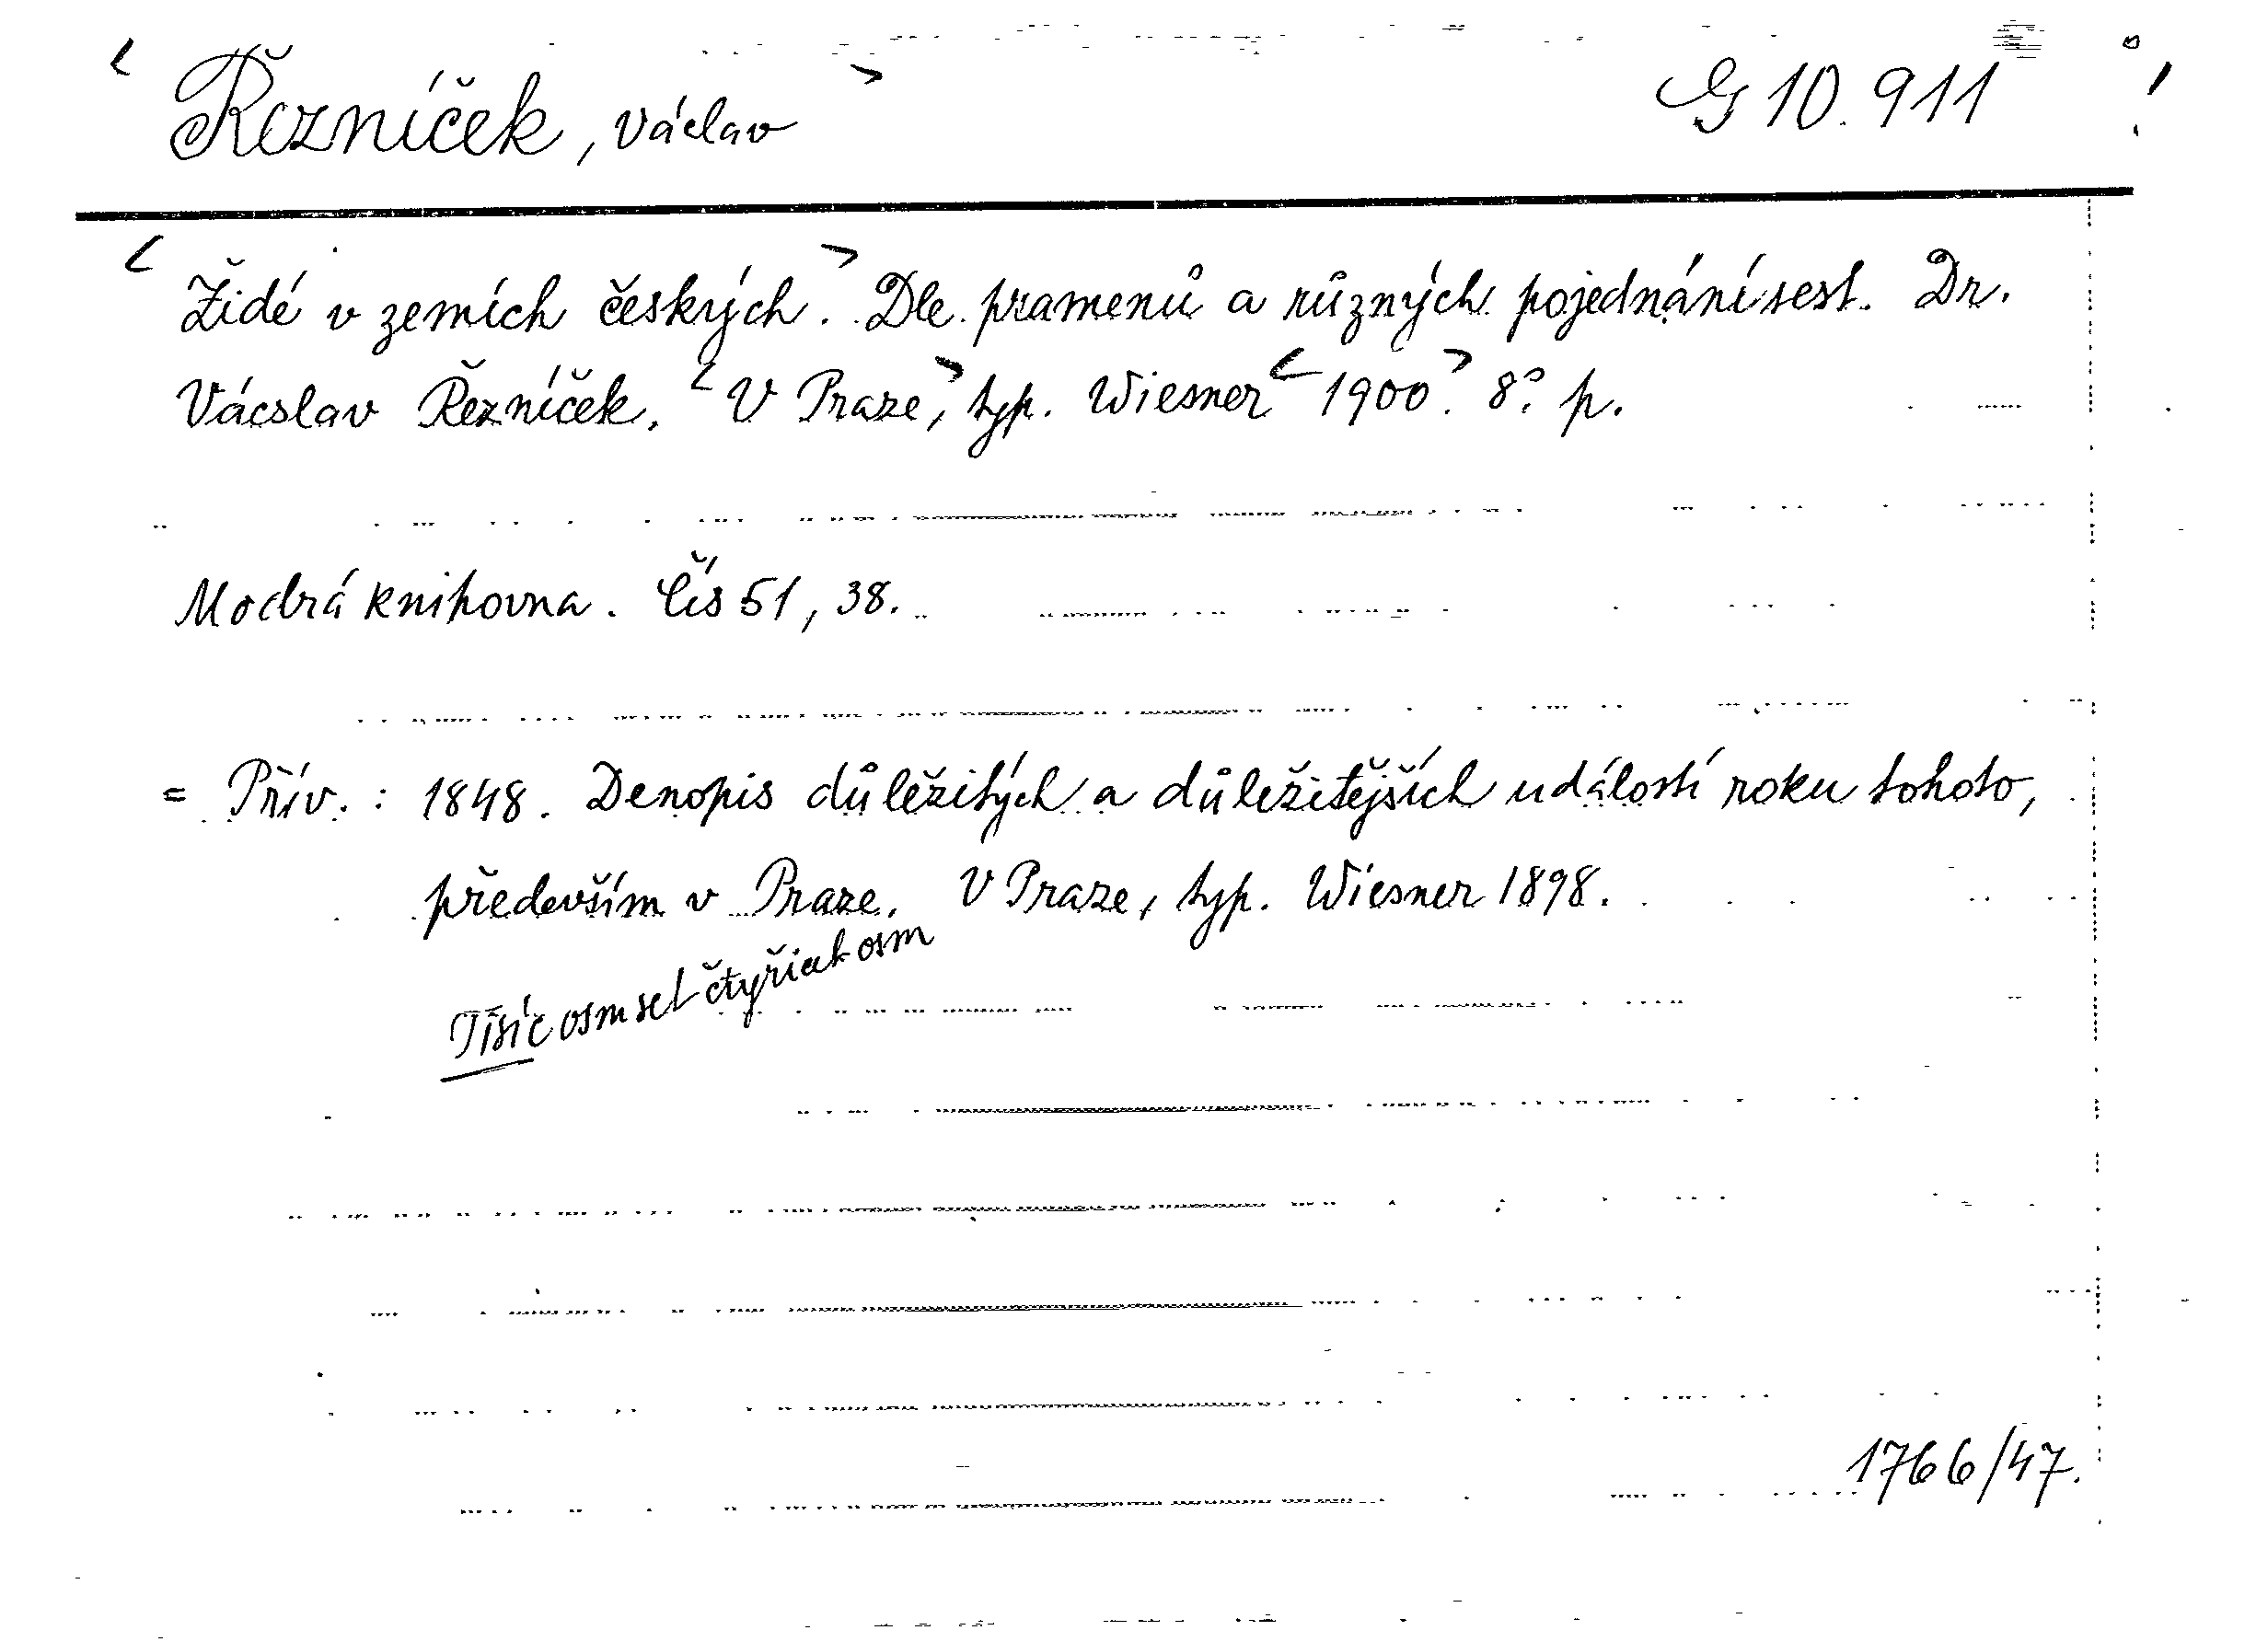 < Řezníček, Václav > G 10.911 !
< Židé v zemích českých. > Dle pramenů a různých pojednání sest. Dr.
Vácslav Řezníček. < V Praze, > typ. Wiesner < 1900. > 8° p.
Modrá knihovna. Čís 51, 38.
= Přív. : 1848. Denopis důležitých a důležitějších událostí roku tohoto,
především v Praze. V Praze, typ. Wiesner 1898.
Tisíc osmset čtyřicet osm
1766/47.